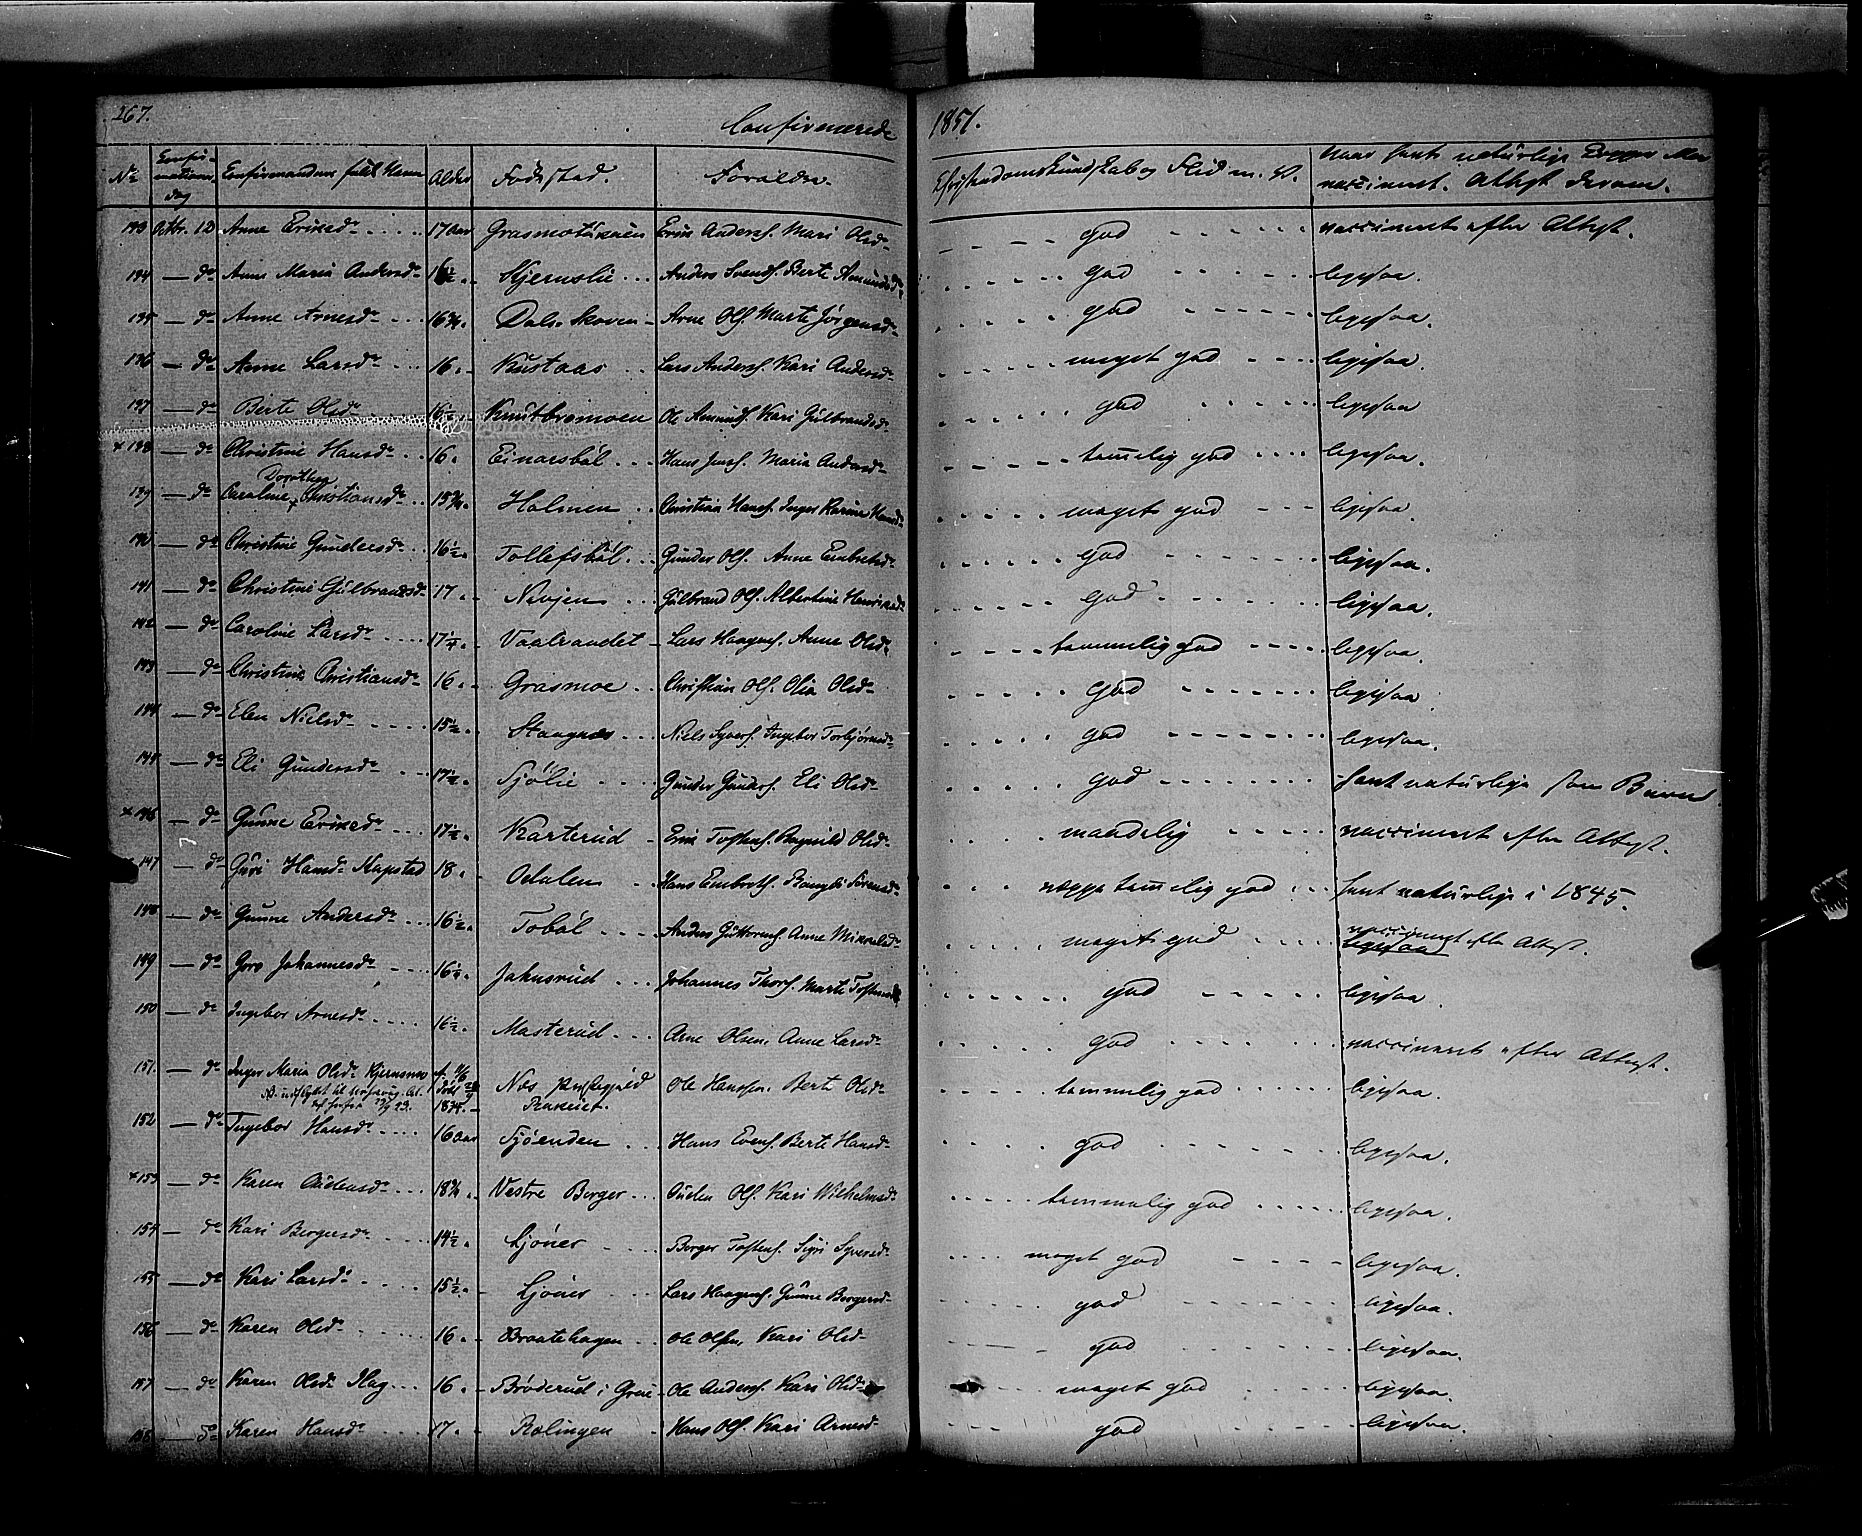 267. Confirmerede 1851.
No Confirmations dag Confirmandens fulde Navn Alder Fødested. Forældre. Christendomskundskab og Flid m. V. Naar havt naturlige Kopper eller vaccineret. Attest derom.
133 Octbr. 12 Anne Eriksdr 17 aar Erik Anders. Mari Olsdr god vaccineret efter Attest.
134 — do Anne Maria Andersdr 16½ Kjernslie Anders Svends. Berte Amundsdr god ligesaa.
135 — do Anne Arnesdr 16¾ Dals-skoven Arne Ols. Marte Jørgensdr god ligesaa.
136 — do Anne Larsdr 16 Kustaas Lars Anders. Kari Andersdr meget god ligesaa.
137 — do Berte Olsdr 16½ Knutbremoen Ole Amunds. Kari Gulbrandsdr god ligesaa
+138 — do Christine Hansdr 16. Einarsbøl Hans Jens. Maria Andersdr temelig god ligesaa.
139 — do Caroline Dorothea Christiansdr 15¾ Holmen Christian Hans. Inger Karine Hansdr meget god ligesaa.
140 — do Christine Gundersdr 16½ Tollefsbøl Gunder Ols. Anne Embretsdr god ligesaa.
141 — do Christine Gulbrandsdr 17 Gulbrand Ols. Albertine Henriksdr god ligesaa.
142 — do Caroline Larsdr 17¼ Vaalrandet Lars Haagens. Anne Olsdr temmelig god ligesaa.
143 — do Christine Christiansdr 16 Grasmoe Christian Ols. Olia Olsdr god ligesaa.
144 — do Elen Nielsdr 15½ Staagnæs Niels Syvers. Ingebor Torbjørnsdr god ligesaa.
145 — do Eli Gundersdr 17½ Sjølie Gunder Gunders. Eli Olsdr god havt naturlige som Barn
+146 — do Gunne Eriksdr 17½ Karterud Erik Tostens. Ragnild Olsdr maadelig vaccineret efter Attest.
147 — do Guri Hansdr Kapstad 18 Odalen Hans Embreths. Sørensdr neppe temelig god havt naturlige i 1845.
148 — do Gunne Andersdr 16½ Tobøl Anders Guttorms. Anne Mikkelsdr meget god vaccineret efter Attest.
149 — do Goro Johannesdr 16½ Jahnsrud Johannes Thors. Marte Tostensdr god ligesaa.
150 — do Ingebor Arnesdr 16½ Masterud Arne Olsen, Anne Larsdr god vaccineret efter Attest.
151. — do Inger Maria Olsdr Kjernsmo 1834. Næs præstegjeld Ole Hansen. Berte Olsdr temmelig god ligesaa.
152 — do Ingebor Hansdr 16 aar Sjøenden Hans Evens. Berte Hansdr god ligesaa.
+153 — do Karen Audensdr 18¾ Vestre Berger Auden Ols. Kari Wilhelmsdr temmelig god ligesaa.
154 — do Kari Bergersdr 14½ Ljøner Berger Tostens. Sigri Syversdr meget god ligesaa.
155 — do Kari Larsdr 15½ Ljøner Lars Haagens. Gunne Bergersdr god ligesaa.
156 — do Karen Olsdr 16 Braatehagen Ole Olsen, Kari Olsdr god ligesaa.
157 — do Karen Olsdr Hag 16 Brøderud i Grue Ole Anders. Kari Olsdr meget god ligesaa.
158 — do Karen Hansdr 17. Rolingen Hans Ols. Kari Arnesdr god ligesaa.